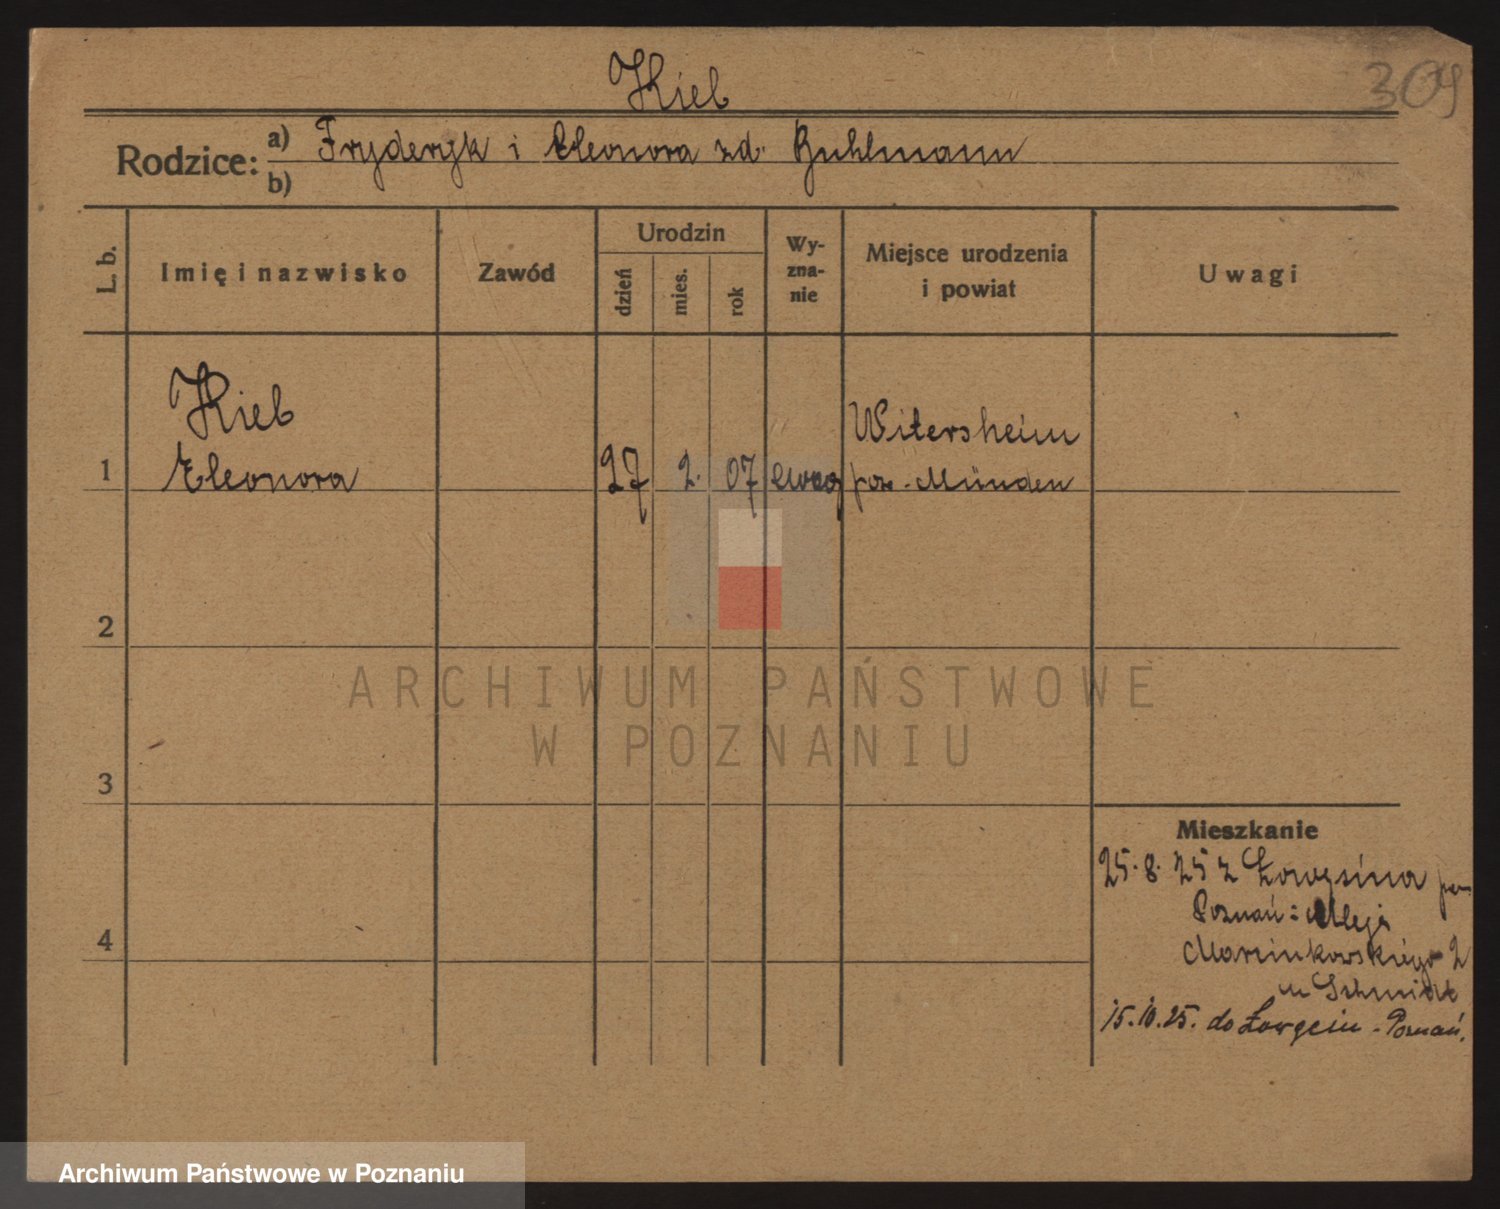 Kieb
309
Rodzice: a) Fryderyk i Eleonora zd. Buhlmann
b)
L. b.
Imię i nazwisko
Zawód
Urodzin
dzień
mies.
rok
Wy-
zna-
nie
Miejsce urodzenia
i powiat
Uwagi
Kieb
1 Eleonora 27 2. 07 ewag
Witersheim
pow. Münden
2
3
4
ARCHIWUM PAŃSTWOWE
W POZNANIU
Mieszkanie
25. 8. 25 z Łowęcina pow.
Poznań: Aleje
Marcinkowskiego 2
u Schmidt
15.10.25. do Łowęcin - Poznań.
Archiwum Państwowe w Poznaniu